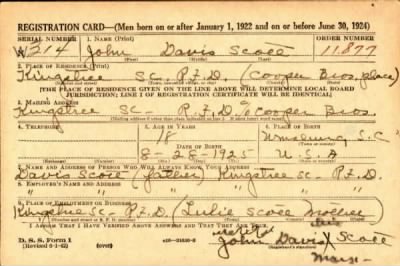 REGISTRATION CARD—(Men born on or after January 1, 1922 and on or before June 30, 1924)
SERIAL NUMBER 1. NAME (Print) ORDER NUMBER
W 214 John Davis Scott 11,877
(First) (Middle) (Last)
2. PLACE OF RESIDENCE (Print)
Kingstree S.C. R.F.D. (Cooper Bros. place)
[THE PLACE OF RESIDENCE GIVEN ON THE LINE ABOVE WILL DETERMINE LOCAL BOARD
JURISDICTION; LINE 2 OF REGISTRATION CERTIFICATE WILL BE IDENTICAL]
3. MAILING ADDRESS
Kingstree SC - R.F.D. % Cooper Bros.
4. TELEPHONE 5. AGE IN YEARS 6. PLACE OF BIRTH
18
DATE OF BIRTH S.C
8-28-1925 U.S.A
7. NAME AND ADDRESS OF PERSON WHO WILL ALWAYS KNOW YOUR ADDRESS
Davis Scott (father) Kingstree SC - R.F.D.
8. EMPLOYER'S NAME AND ADDRESS
" " "
9. PLACE OF EMPLOYMENT OR BUSINESS
Kingstree SC - R.F.D. (Scott Mother)
I AFFIRM THAT I HAVE VERIFIED ABOVE ANSWERS AND THAT THEY ARE TRUE.
D. S. S. Form 1 his
(Revised 6-9-42) John Davis X Scott
Mark